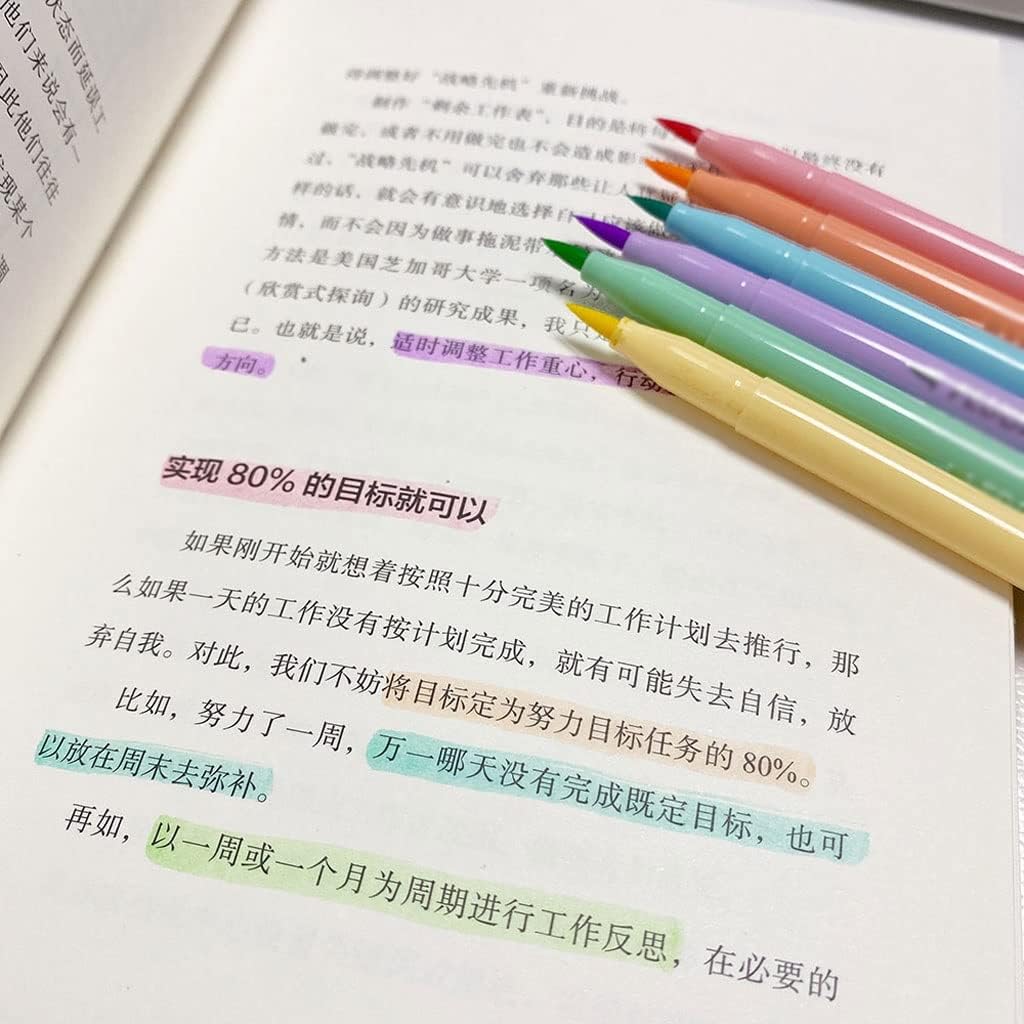 状态而延误工
他们来说会有一
因此他们往往
发现某个
得调整好“战略先机”重新挑战。
制作“剩余工作表”，目的是将每
最终没有
做完，或者不用做完也不会造成影
过，“战略先机”可以舍弃那些让人
样的话，就会有意识地选择自己应该做
情，而不会因为做事拖泥带
方法是美国芝加哥大学一项名为
（欣赏式探询）的研究成果，我只是
已。也就是说，适时调整工作重心，行动
方向。
实现 80% 的目标就可以
如果刚开始就想着按照十分完美的工作计划去推行，那
么如果一天的工作没有按计划完成，就有可能失去自信，放
弃自我。对此，我们不妨将目标定为努力目标任务的 80%。
比如，努力了一周，万一哪天没有完成既定目标，也可
以放在周末去弥补。
再如，以一周或一个月为周期进行工作反思，在必要的